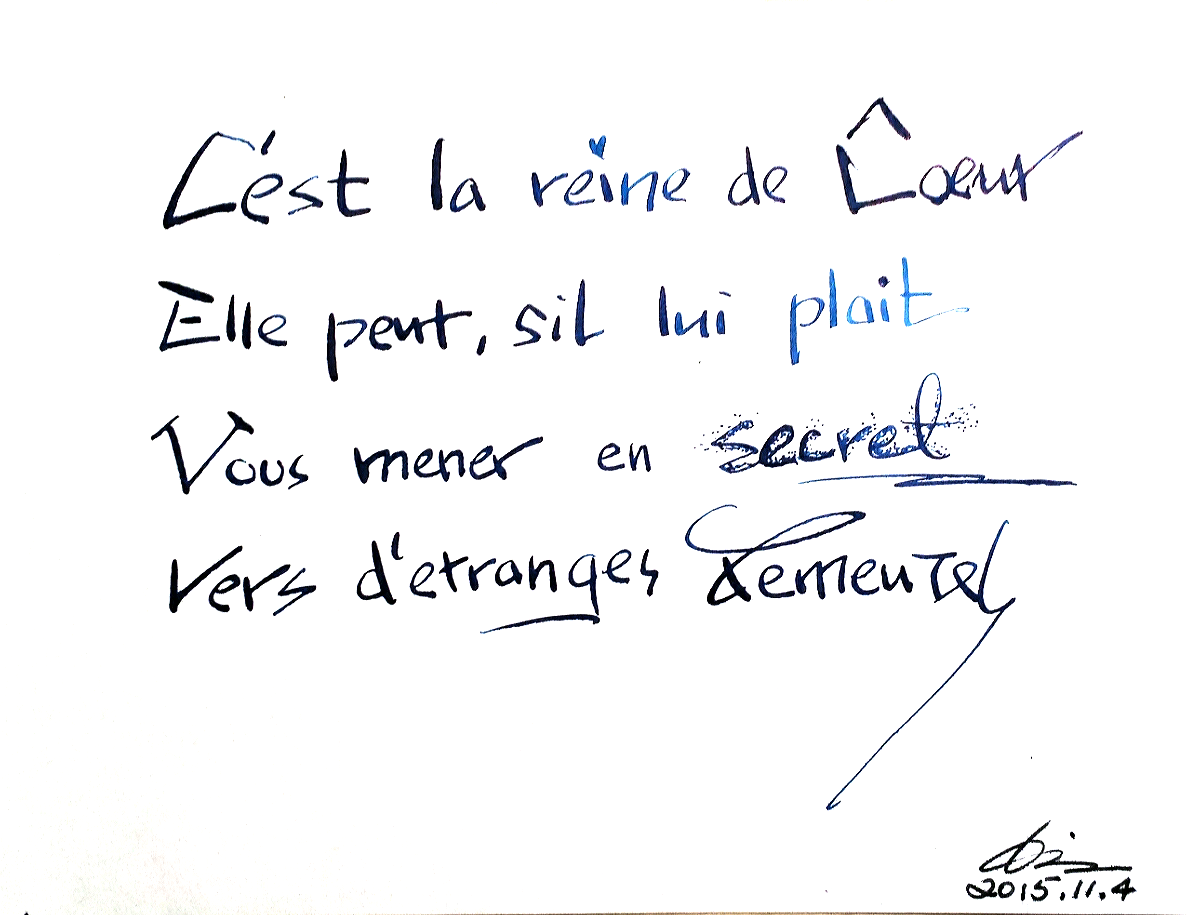 C'est la reine de Cœur
Elle peut, sil lui plait
Vous mener en secret
Vers d'etranges demeures
2015.11.4